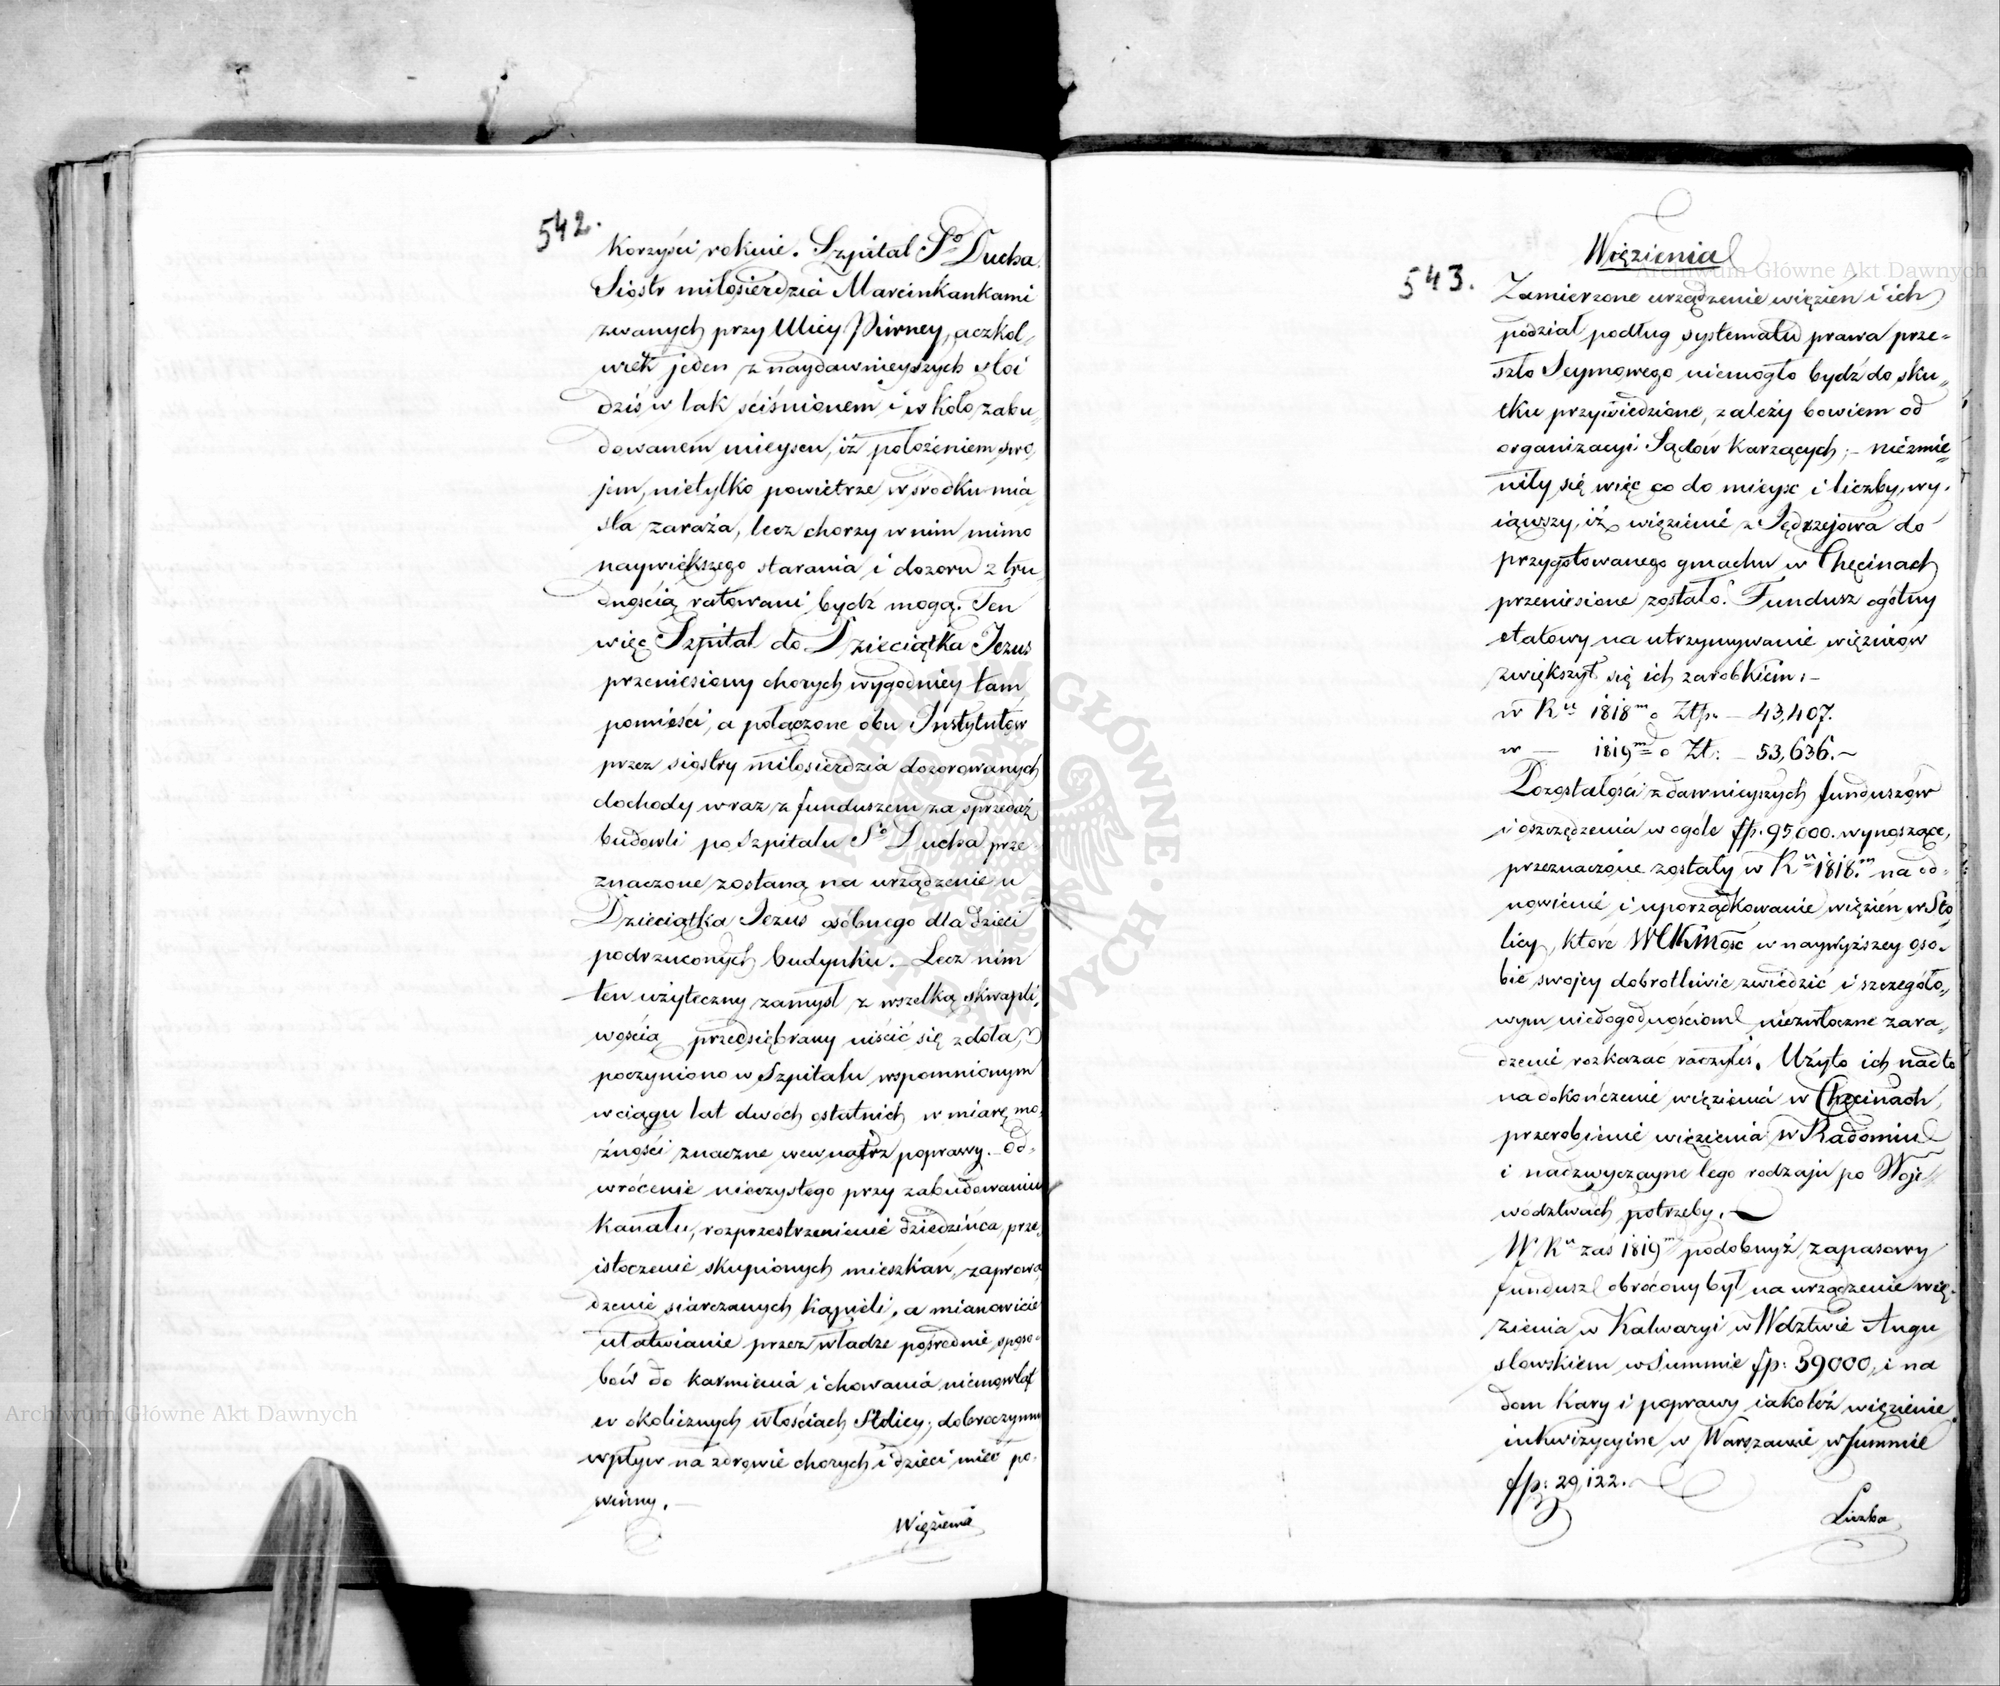 542.
Korzyści roknie. Szpital Sgo Ducha
Siostr miłosierdzia Marcinkankami
zwanych przy Ulicy Piwney, aczkol„
wiek jeden z naydawnieyszych stoi
dziś w tak ściśnionem i w koło zabu„
dowanem mieyscu, iż położeniem swo„
jem, nietylko powietrze w środku mia
sta zaraża, lecz chorzy w nim mimo
naywiększego starania i dozoru z tru„
dnością ratowani bydź mogą. Ten
więc Szpital do Dzieciątka Jezus
przeniesiony chorych wygodniey tam
pomieści, a połączone obu Instytutów
przez siostry miłosierdzia dozorowanych
dochody wraz z funduszem za sprzedaż
budowli po Szpitalu Sgo Ducha prze„
znaczone zostaną na urządzenie u
Dzieciątka Jezus osóbnego dla dzieci
podrzuconych budynku. – Lecz nim
ten użyteczny zamysł z wszelką skwapli„
wością przedsiębrany uiścić się zdoła,
poczyniono w Szpitalu wspomnionym
w ciągu lat dwóch ostatnich w miarę mo„
żności znaczne wewnątrz poprawy. – Od„
wrócenie nieczystego przy zabudowaniu
kanału, rozprzestrzenienie dziedzińca, prze„
istoczenie skupionych mieszkań, zaprowa„
dzenie siarczanych kąpieli, a mianowicie
ułatwianie przez władze pośrednie sposo„
bów do karmienia i chowania niemowląt
w okolicznych włościach Stolicy; dobroczynny
wpływ na zdrowie chorych i dzieci mieć po„
winny. —
Więzienia
Więzienia
543.
Zamierzone urządzenie więzień i ich
podział podług systematu prawa prze„
szło Seymowego niemogło bydź do sku„
tku przywiedzione, zależy bowiem od
organizacyi Sądów Karzących; – niezmie„
niły się więc co do mieysc i liczby, wy„
iąwszy, iż więzienie z Jędrzejowa do
przygotowanego gmachu w Chęcinach
przeniesione zostało. Fundusz ogólny
etatowy na utrzymywanie więźniów
zwiększył się ich zarobkiem: –
w Ru 1818m o Złp. – 43,407.
w — 1819m o Zł: – 53,636.~
Pozostałości z dawnieyszych funduszów
i oszczędzenia w ogóle fp. 95000. wynoszące,
przeznaczone zostały w Ru 1818.m na od„
nowienie i uporządkowanie więzień w Sto
licy, które WCKMość w naywyższey oso„
bie swojey dobrotliwie zwiedzić i szczegóło„
wym niedogodnościom niezwłoczne zara„
dzenie rozkazać raczyłeś. Użyto ich nadto
na dokończenie więzienia w Chęcinach,
przerobienie więzienia w Radomiu
i nadzwyczayne tego rodzaju po Woje„
wództwach potrzeby. —
W Ru zaś 1819m podobnyż zapasowy
fundusz obrócony był na urządzenie wię„
zienia w Kalwaryi w Wdztwie Augu
stowskiem w Summie fp: 39000, i na
dom Kary i poprawy iakoteż więzienie
inkwizycyine w Warszawie w Summie
fp: 29,122. ~
Liczba
Archiwum Główne Akt Dawnych
Archiwum Główne Akt Dawnych
ARCHIWUM GŁÓWNE AKT DAWNYCH